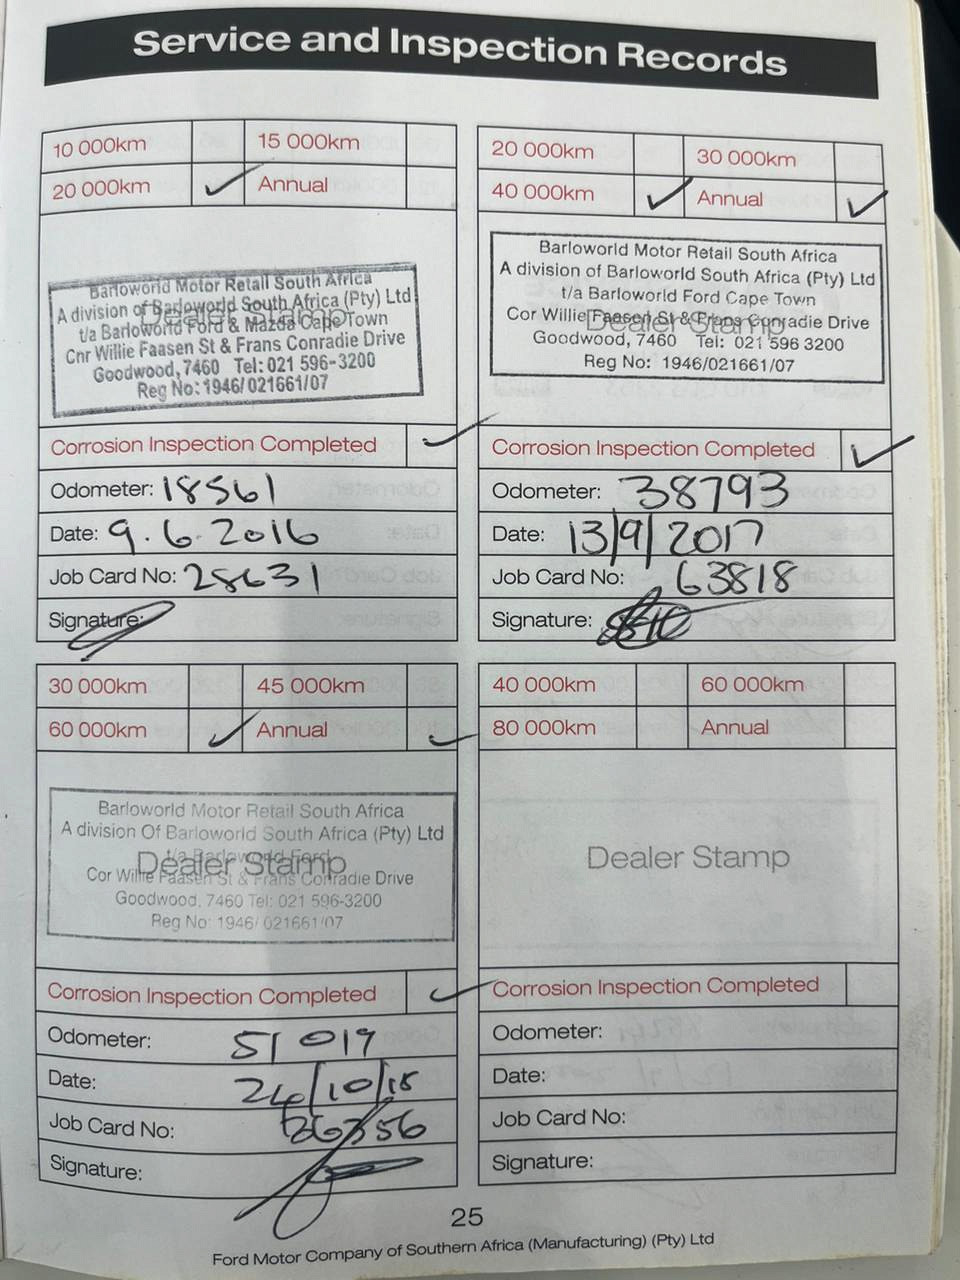 Service and Inspection Records
10 000km 15 000km
20 000km ✓ Annual
Barloworld Motor Retail South Africa
A division of Barloworld South Africa (Pty) Ltd
t/a Barloworld Ford & Mazda Cape Town
Cnr Willie Faasen St & Frans Conradie Drive
Goodwood, 7460 Tel: 021 596-3200
Reg No: 1946/021661/07
Dealer Stamp
Corrosion Inspection Completed ✓
Odometer: 18561
Date: 9.6.2016
Job Card No: 28631
Signature:
20 000km 30 000km
40 000km ✓ Annual ✓
Barloworld Motor Retail South Africa
A division of Barloworld South Africa (Pty) Ltd
t/a Barloworld Ford Cape Town
Cor Willie Faasen St & Frans Conradie Drive
Dealer Stamp
Goodwood, 7460 Tel: 021 596 3200
Reg No: 1946/021661/07
Corrosion Inspection Completed ✓
Odometer: 38793
Date: 13/9/2017
Job Card No: 63818
Signature:
30 000km 45 000km
60 000km ✓ Annual ✓
Barloworld Motor Retail South Africa
A division Of Barloworld South Africa (Pty) Ltd
t/a Barloworld Ford
Dealer Stamp
Cor Willie Faasen St & Frans Conradie Drive
Goodwood, 7460 Tel: 021 596-3200
Reg No: 1946/021661/07
Corrosion Inspection Completed ✓
Odometer: 51019
Date:
Job Card No:
Signature:
40 000km 60 000km
80 000km Annual
Dealer Stamp
Corrosion Inspection Completed
Odometer:
Date:
Job Card No:
Signature:
25
Ford Motor Company of Southern Africa (Manufacturing) (Pty) Ltd